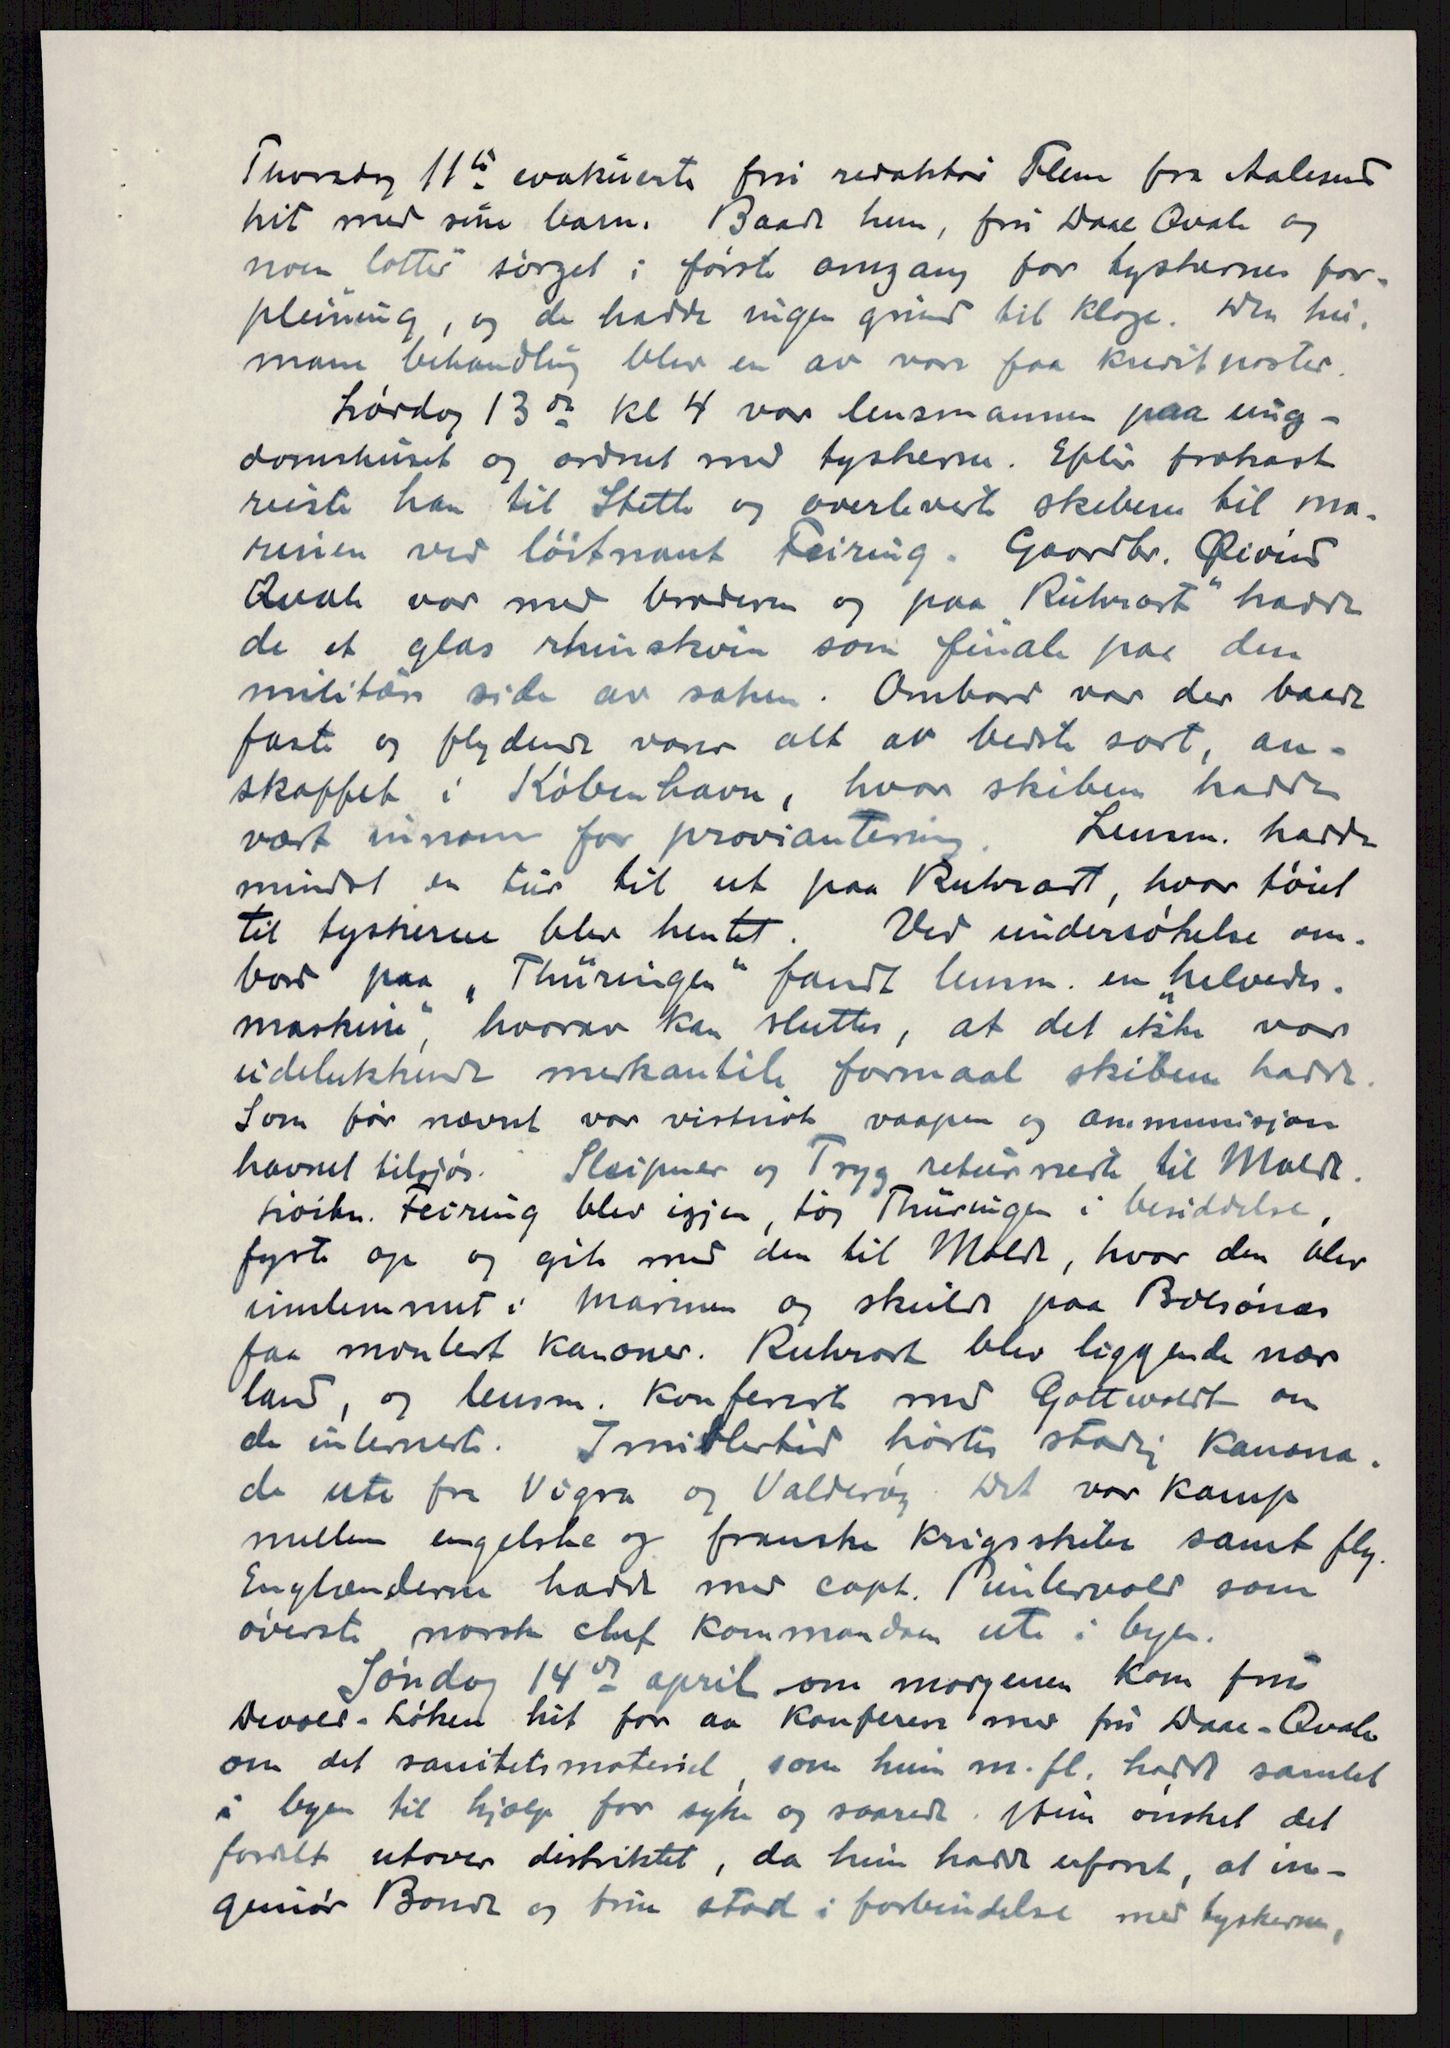 Thorsdag 11te evakuerte fru redaktör Flem fra Aalesund
hit med sine barn. Baade hun, fru Daae Qvale og
noen lotter sörget i förste omgang for tyskernes for-
pleining, og de hadde ingen grund til klage. Den hu-
mane behandling blev en av vore faa kreditposter.
Lördag 13de kl 4 var lensmannen paa ung-
domshuset og ordnet med tyskerne. Efter frokost
reiste han til Stette og overleverte skibene til ma-
rinen ved löitnant Feiring. Gaardbr. Øivind
Qvale var med broderen og paa "Ruhrort" hadde
de et glas rhinskvin som finale paa den
militære side av saken. Ombord var der baade
faste og flydende varer alt av bedste sort, an-
skaffet i Köbenhavn, hvor skibene hadde
vært innom for proviantering. Lensm. hadde
mindst en tur til ut paa Ruhrort, hvor töiet
til tyskerne blev hentet. Ved undersökelse om-
bord paa „Thüringen" fandt lensm. en "helvedes-
maskine", hvorav kan sluttes, at det ikke var
udelukkende merkantile formaal skibene hadde.
Som för nævnt var vistnok vaapen og ammunisjon
havnet tilsjös. Sleipner og Tryg returnerte til Molde.
Löitn. Feiring blev igjen, tog Thüringen i besiddelse,
fyrte op og gik med den til Molde, hvor den blev
innlemmet i marinen og skulde paa Bolsönes
faa montert kanoner. Ruhrort blev liggende nær
land, og lensm. konfererte med Gottwaldt om
de internerte. Imidlertid hörtes stadig kanona-
de ute fra Vigra og Valderöy. Det var kamp
mellem engelske og franske krigsskibe samt fly.
Englænderne hadde med capt. Pintervold som
överste norske chef kommandoen ute i byen.
Söndag 14de april om morgenen kom fru
Devold-Löken hit for aa konferere med fru Daae-Qvale
om det sanitetsmateriel, som hun m.fl. hadde samlet
i byen til hjælp for syke og saarede. Hun önsket det
fordelt utover distriktet, da hun hadde erfaret, at in-
geniör Bonde og frue stod i forbindelse med tyskerne,